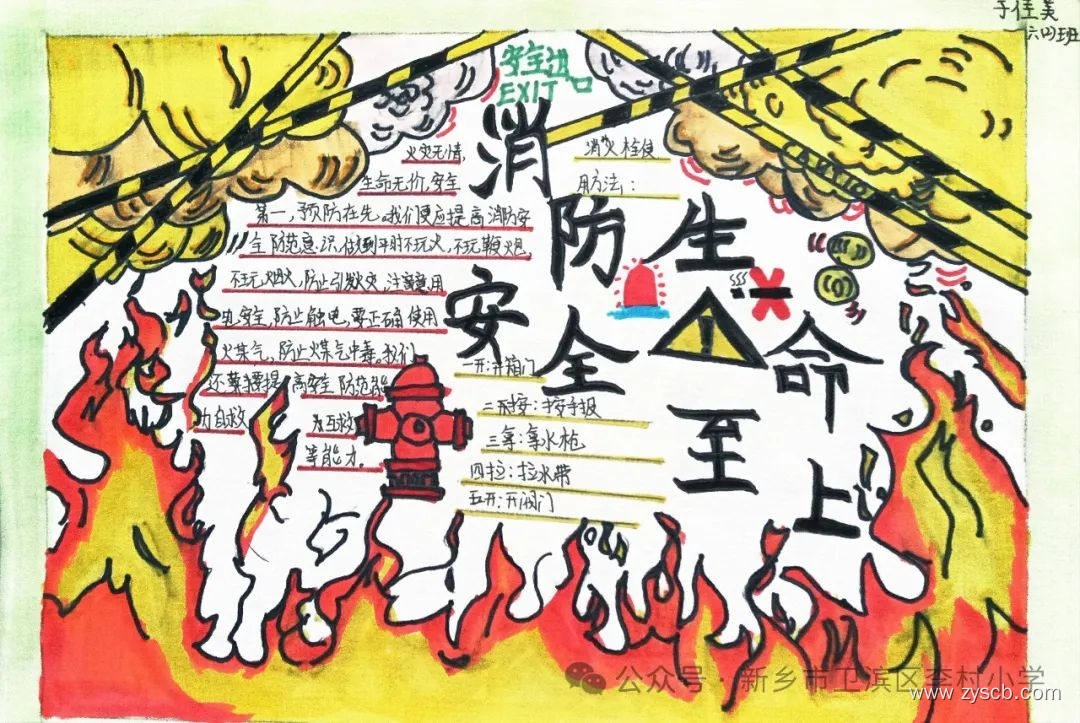 于佳美
六四班
安全进口
EXIT
消防安全
生命至上
CAUTION
火灾无情,
生命无价,安全
第一,预防在先。我们更应提高消防安
全防范意识,做到平时不玩火,不玩鞭炮,
不玩烟火,防止引发火灾,注意用
电安全,防止触电,要正确使用
火煤气,防止煤气中毒。我们
还要掌握提高安全防范能
为自救 为互救
等能力。
消火栓使
用方法:
一开:开箱门
二按:按手报
三拿:拿水枪
四拉:拉水带
五开:开阀门
公众号·新乡市卫滨区李村小学
www.zyscb.com